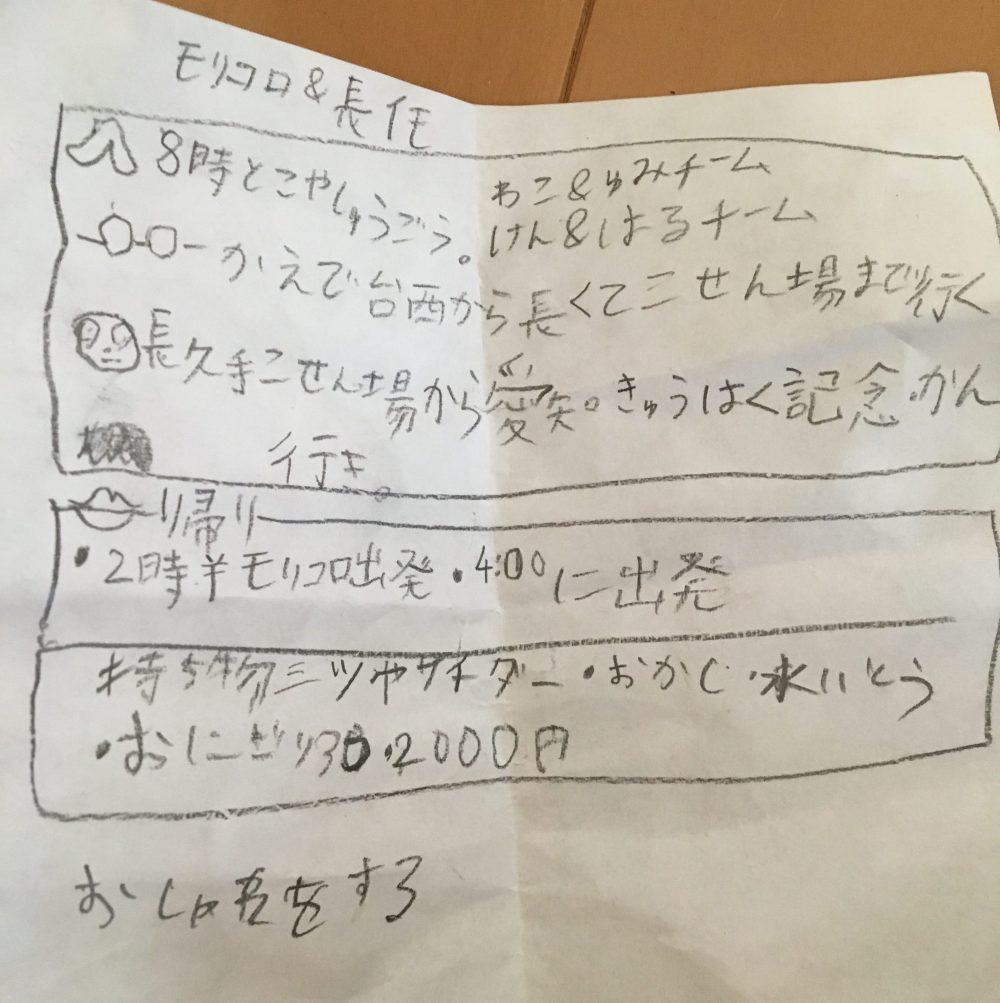 モリコロ&長任
8時とこやしゅうごう。
あこ&ゆみチーム
けん&はるチーム
かえで台西から長くて二せん場まで行く
長久手こせん場から愛矢。きゅうはく記念かん
行き。
リ帰り
・2時半モリコロ出発・4:00に出発
持ち物三ツやサイダー・おかし・水いとう
・おにぎり30・2000円
をする